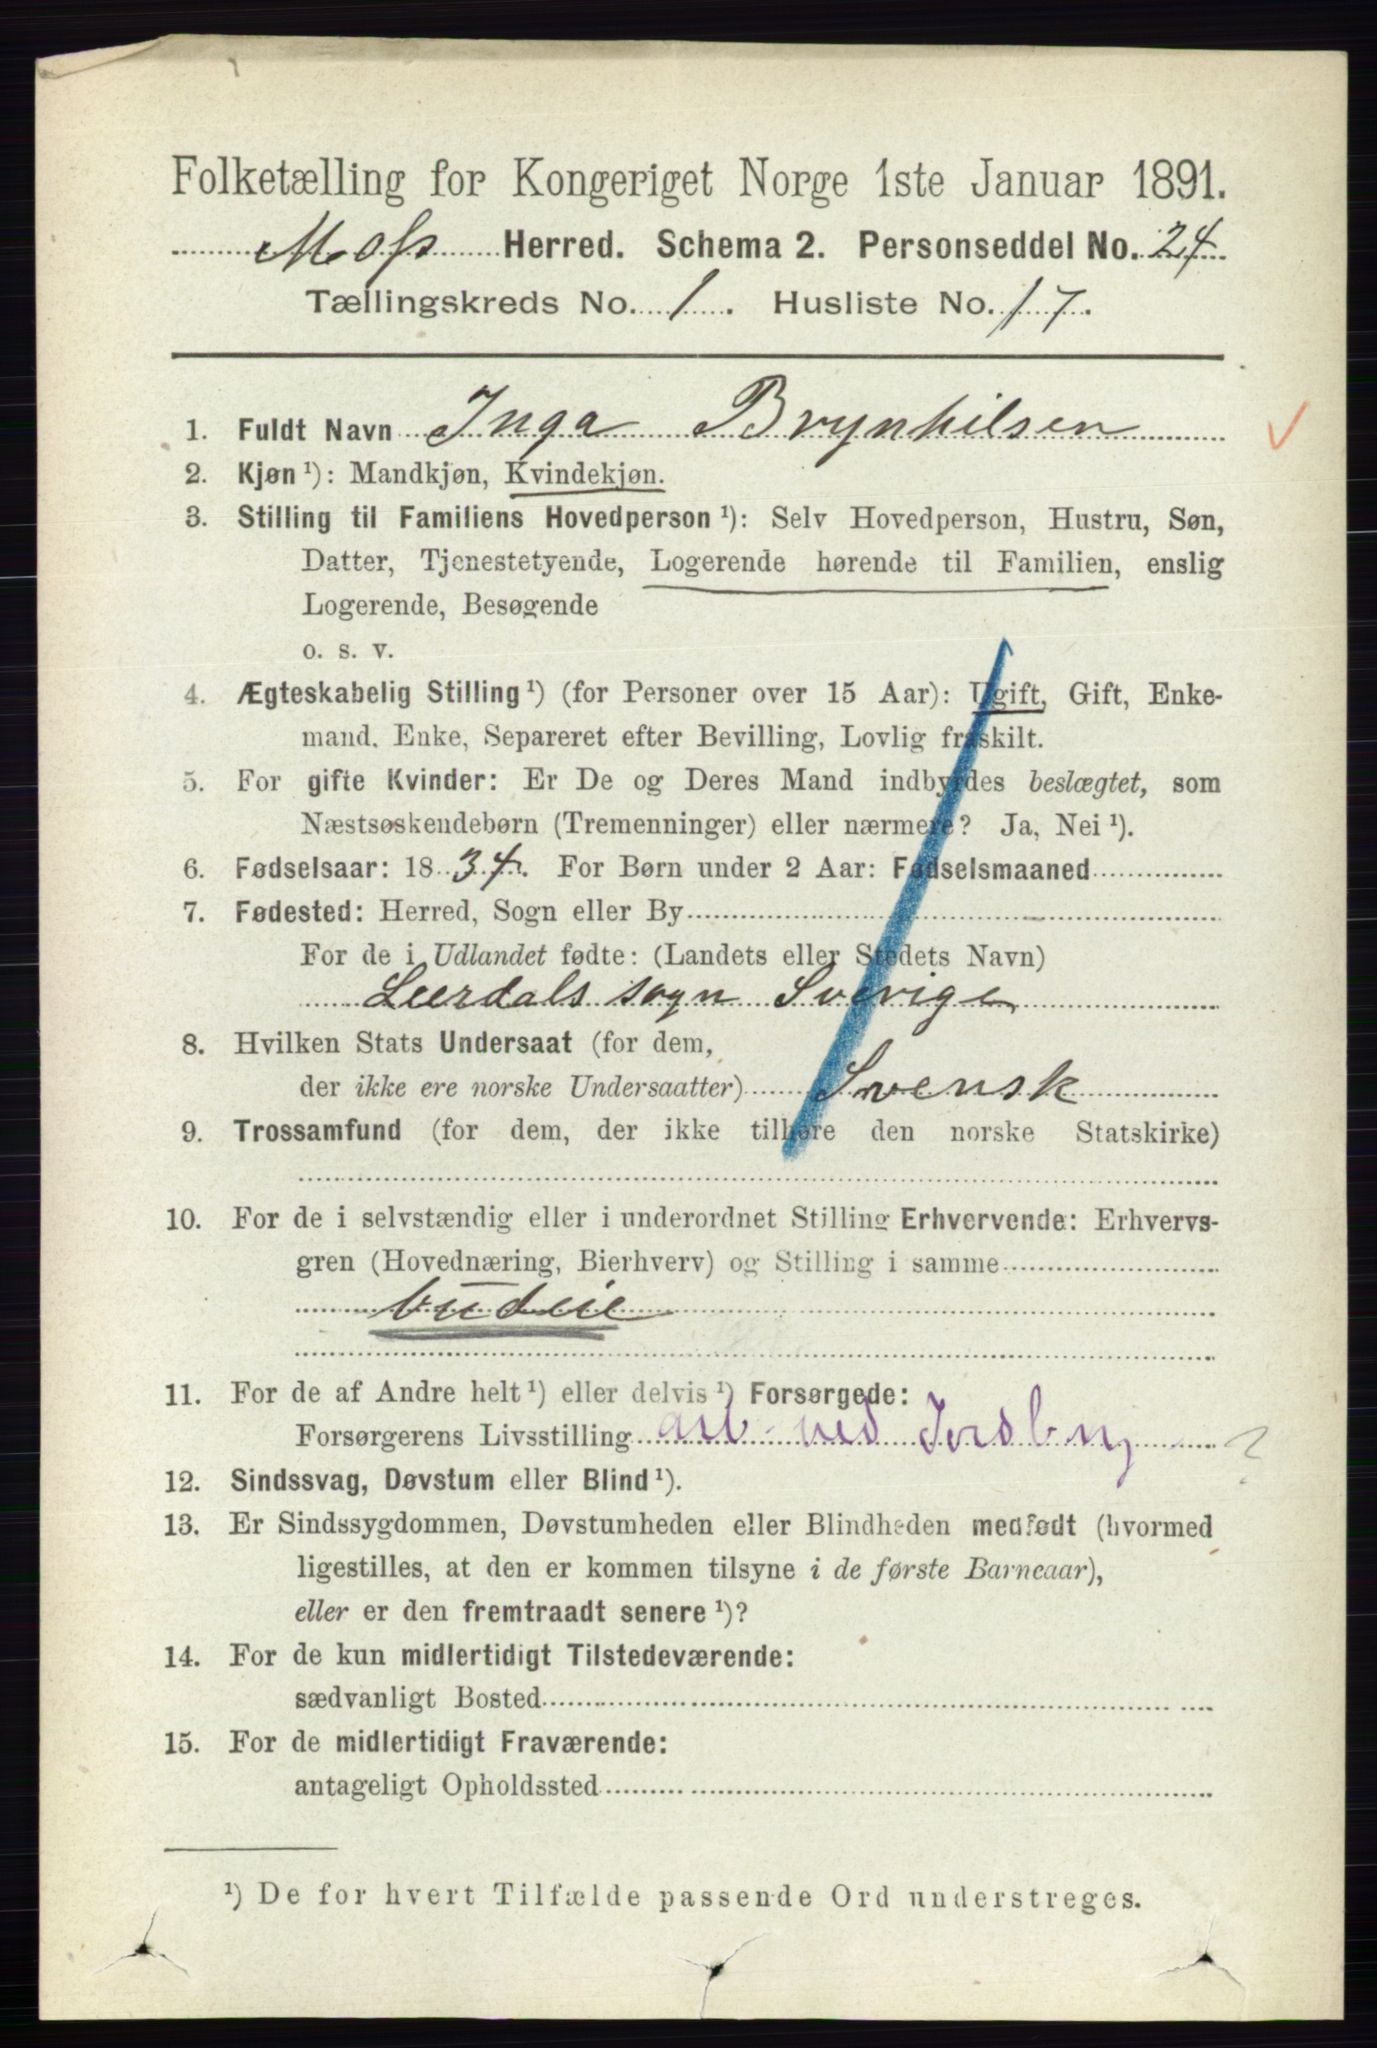 Folketælling for Kongeriget Norge 1ste Januar 1891.
Moss Herred. Schema 2. Personseddel No. 24
Tællingskreds No. 1. Husliste No. 17.
1. Fuldt Navn Inga Brynhilsen
2. Kjøn ¹): Mandkjøn, Kvindekjøn.
3. Stilling til Familiens Hovedperson ¹): Selv Hovedperson, Hustru, Søn,
Datter, Tjenestetyende, Logerende hørende til Familien, enslig
Logerende, Besøgende
o. s. v.
4. Ægteskabelig Stilling ¹) (for Personer over 15 Aar): Ugift, Gift, Enke-
mand, Enke, Separeret efter Bevilling, Lovlig fraskilt.
5. For gifte Kvinder: Er De og Deres Mand indbyrdes beslægtet, som
Næstsøskendebørn (Tremenninger) eller nærmere? Ja, Nei ¹).
6. Fødselsaar: 1834. For Børn under 2 Aar: Fødselsmaaned
7. Fødested: Herred, Sogn eller By
For de i Udlandet fødte: (Landets eller Stedets Navn)
Leerdals sogn Sverige
8. Hvilken Stats Undersaat (for dem,
der ikke ere norske Undersaatter) Svensk
9. Trossamfund (for dem, der ikke tilhøre den norske Statskirke)
10. For de i selvstændig eller i underordnet Stilling Erhvervende: Erhvervs-
gren (Hovednæring, Bierhverv) og Stilling i samme
budeie
11. For de af Andre helt ¹) eller delvis ¹) Forsørgede:
Forsørgerens Livsstilling arb ved Jordbrug ?
12. Sindssvag, Døvstum eller Blind ¹).
13. Er Sindssygdommen, Døvstumheden eller Blindheden medfødt (hvormed
ligestilles, at den er kommen tilsyne i de første Barneaar),
eller er den fremtraadt senere ¹)?
14. For de kun midlertidigt Tilstedeværende:
sædvanligt Bosted
15. For de midlertidigt Fraværende:
antageligt Opholdssted
¹) De for hvert Tilfælde passende Ord understreges.